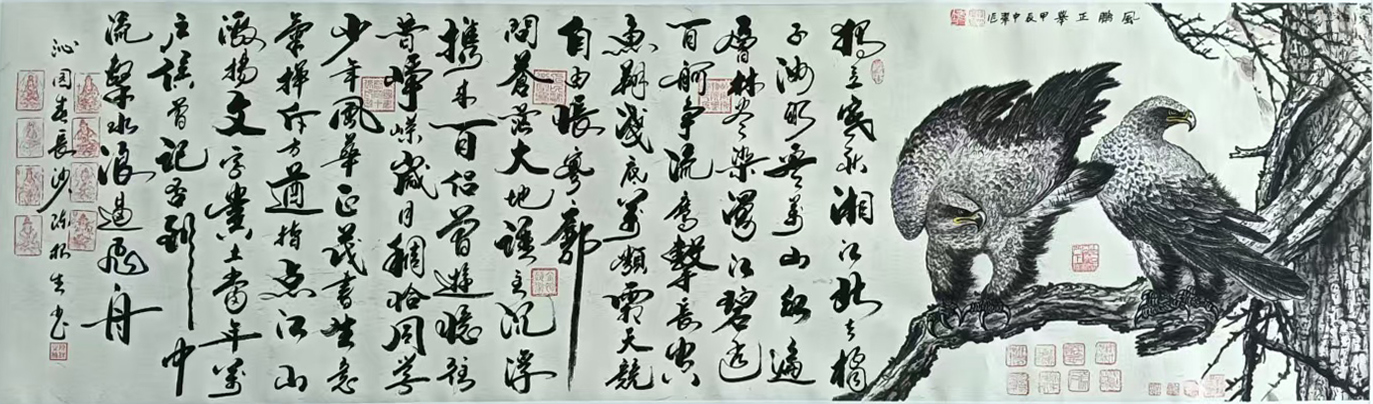 風鵬正举 甲辰中
獨立寒秋湘江北去橘
子洲頭看萬山紅遍
層林盡染漫江碧透
百舸争流鷹擊長空
魚翔淺底萬類霜天競
自由悵寥廓
問蒼茫大地誰主沉浮
携来百侣曾遊憶往
昔崢嶸歲月稠恰同学
少年風華正茂書生意
氣揮斥方遒指点江山
激揚文字糞土當年萬
户侯曾記否到中
流擊水浪遏飛舟
沁园春長沙 陈振生书